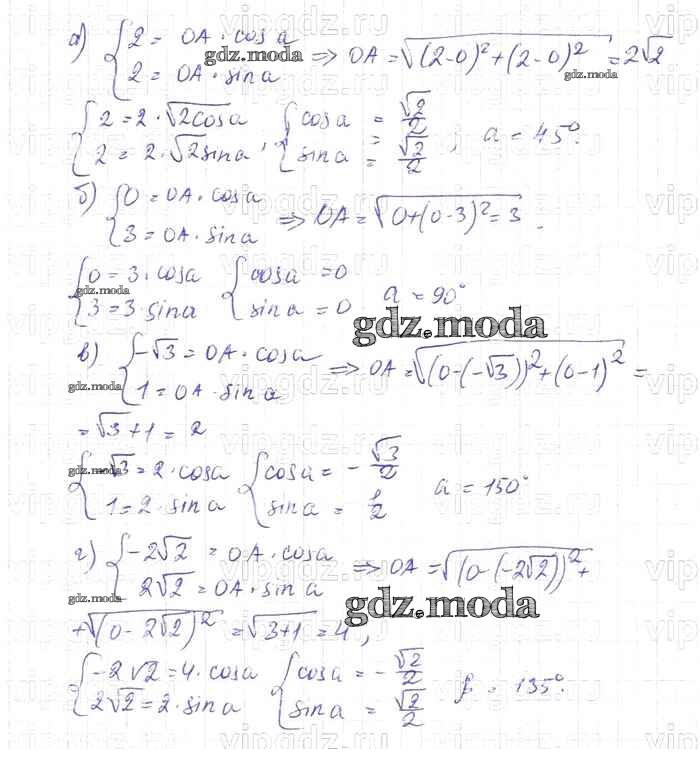 а) { 2 = OA · cos a
2 = OA · sin a ⇒ OA = √(2-0)² + (2-0)² = 2√2
{ 2 = 2 · √2cosa
2 = 2 · √2sina , { cosa = √2/2
sina = √2/2 , a = 45°.
б) { 0 = OA · cosa
3 = OA · sina ⇒ OA = √0+(0-3)² = 3 .
{ 0 = 3 · cosa
3 = 3 · sina { cosa = 0
sina = 0 a = 90°
в) { -√3 = OA · cosa
1 = OA · sina ⇒ OA = √(0-(-√3))² + (0-1)² =
= √3+1 = 2
{ -√3 = 2 · cosa
1 = 2 · sina { cosa = - √3/2
sina = 1/2 a = 150°
г) { -2√2 = OA · cosa
2√2 = OA · sina ⇒ OA = √(0-(-2√2))² +
+ √(0-2√2)² = √3+1 = 4 ,
{ -2√2 = 4 · cosa
2√2 = 2 · sina { cosa = - √2/2
sina = √2/2 = 135°.
gdz.moda
gdz.moda
gdz.moda
gdz.moda
gdz.moda
gdz.moda
gdz.moda
gdz.moda
vipgdz.ru